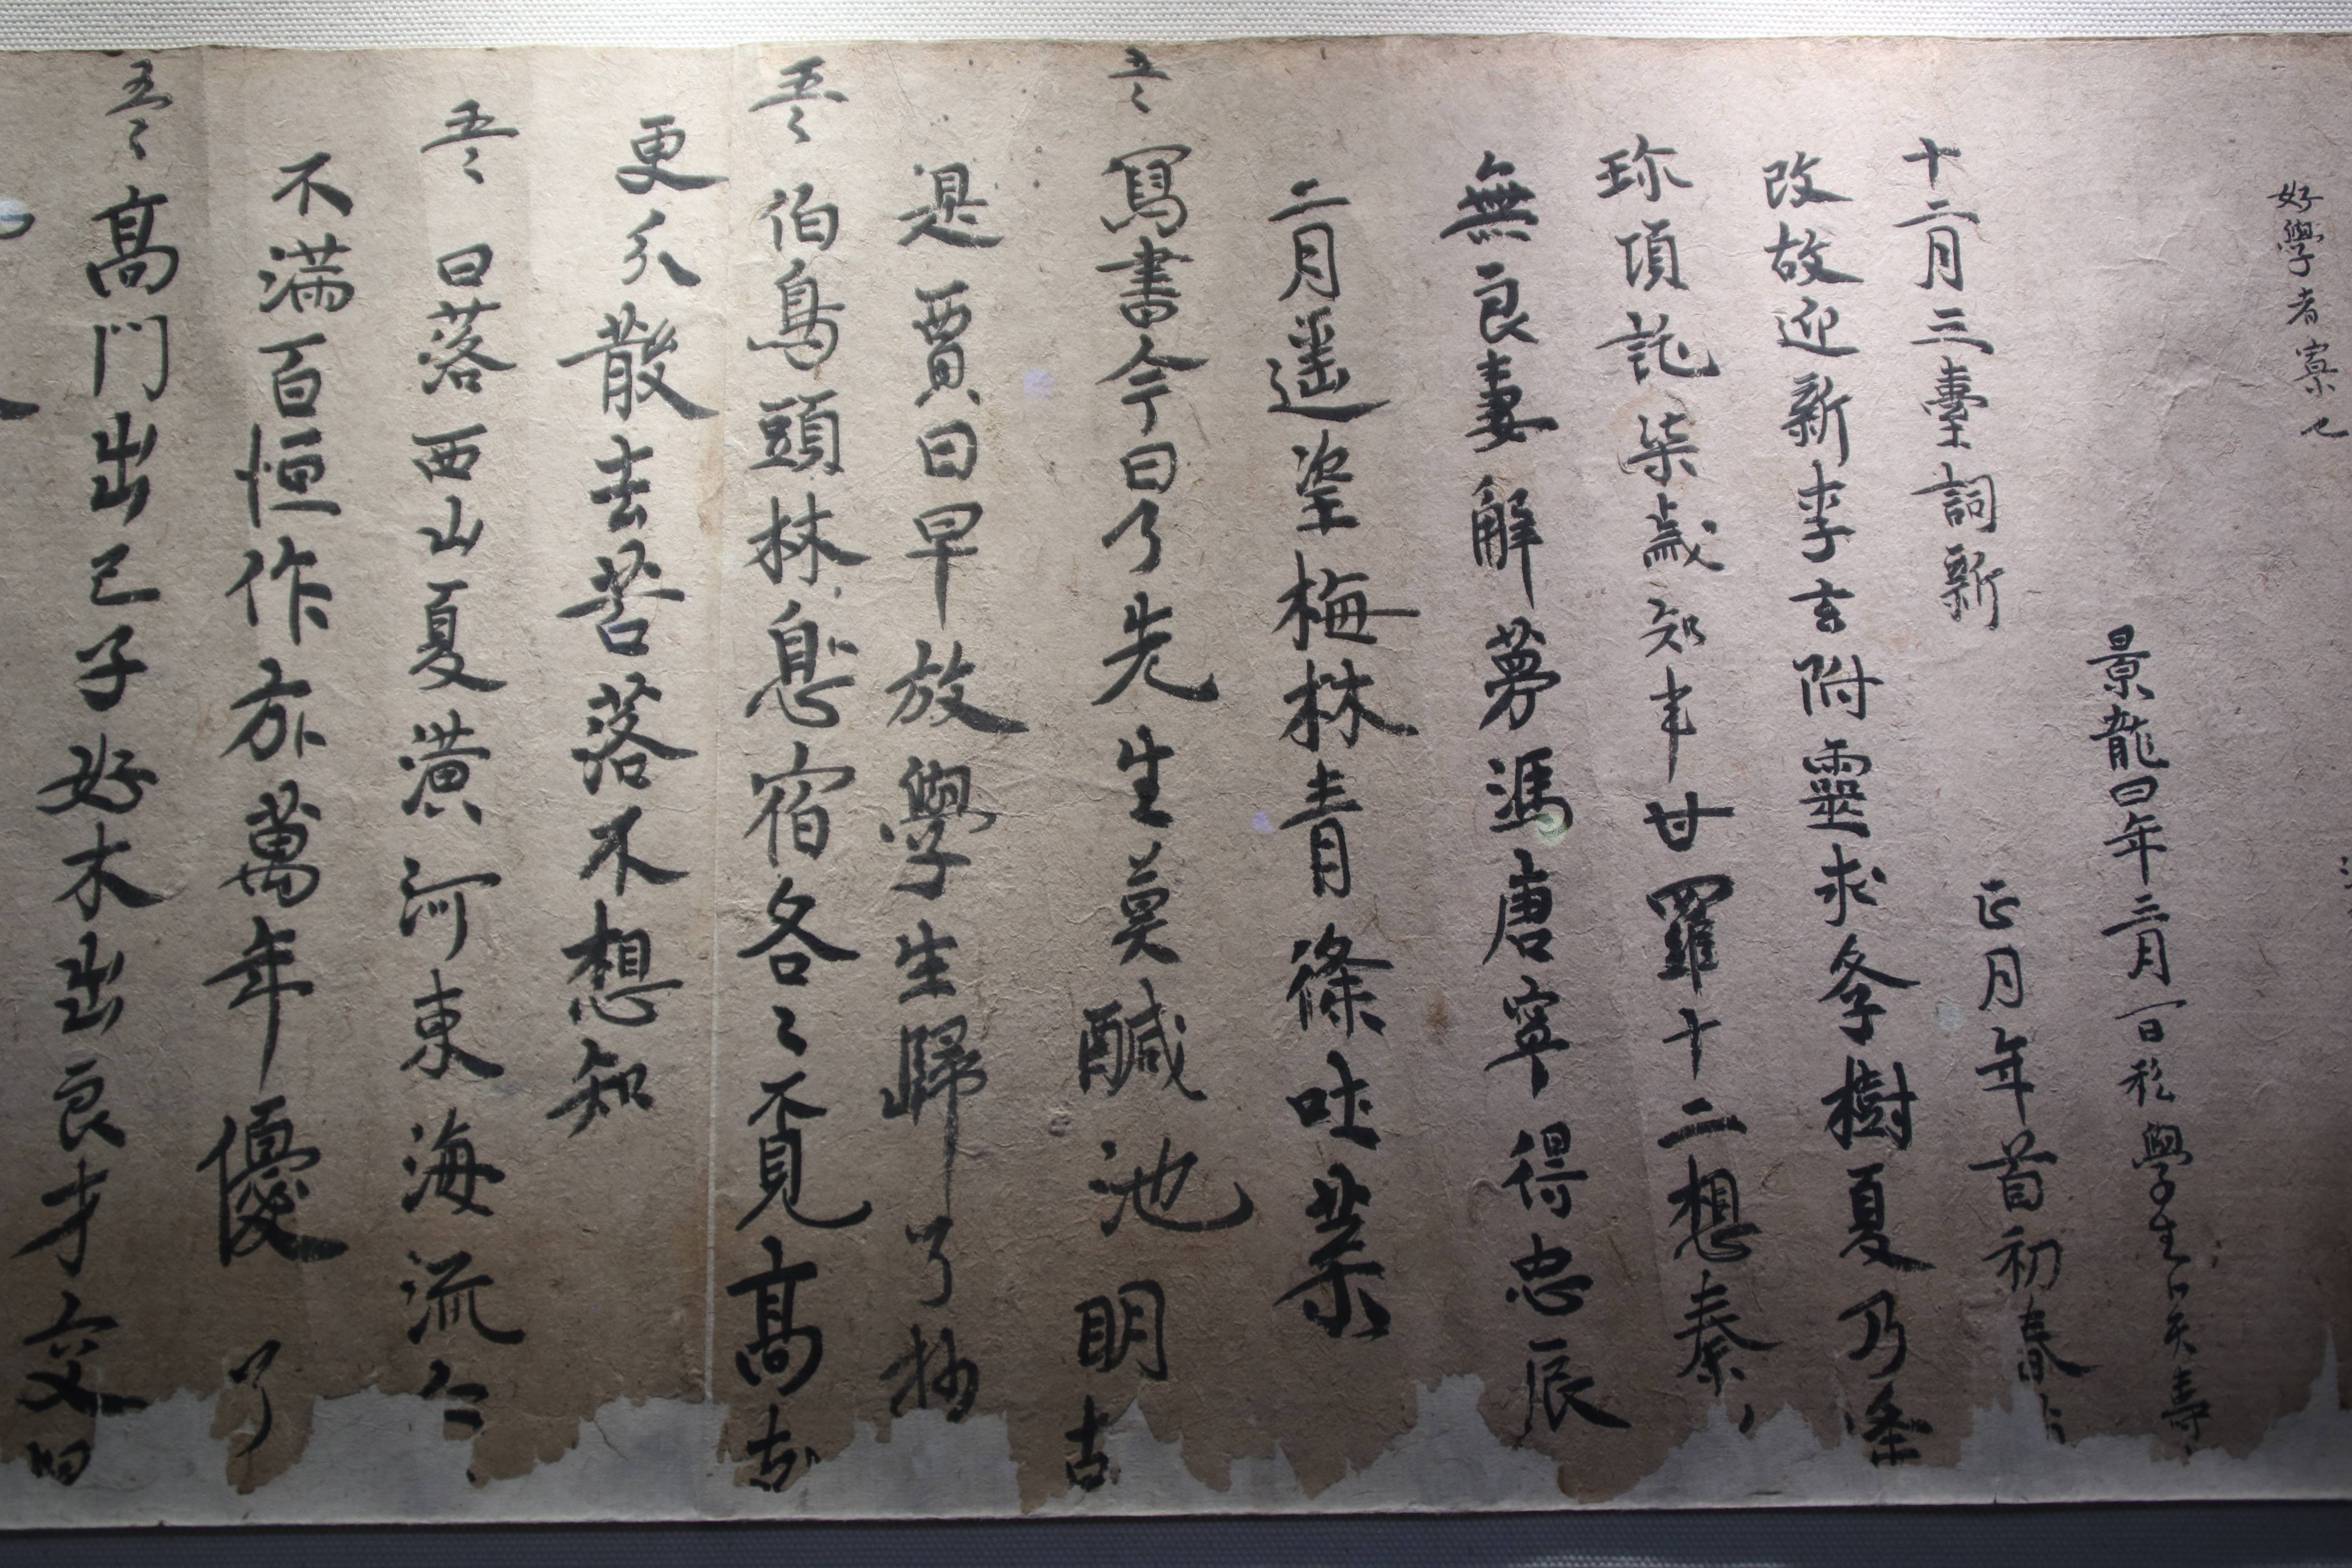 好學者寡也
景龍四年三月一日私學生卜天壽
十二月三臺詞新 正月年首初春
改故迎新李玄附靈求學樹夏乃逢
珎項託柒歲知事甘羅十二想秦
無良妻解夢馮唐寧得忠辰
二月遥望梅林青條吐葉
五言 寫書今日了先生莫醎池明
遲賈日早放學生歸 了抄
五言 伯鳥頭林息宿各〻覓高
更分散去苦落不想知
五言 日落西山夏潢河東海流
不滿百恒作方萬年優 了
五言 高門出己子好木出良才交